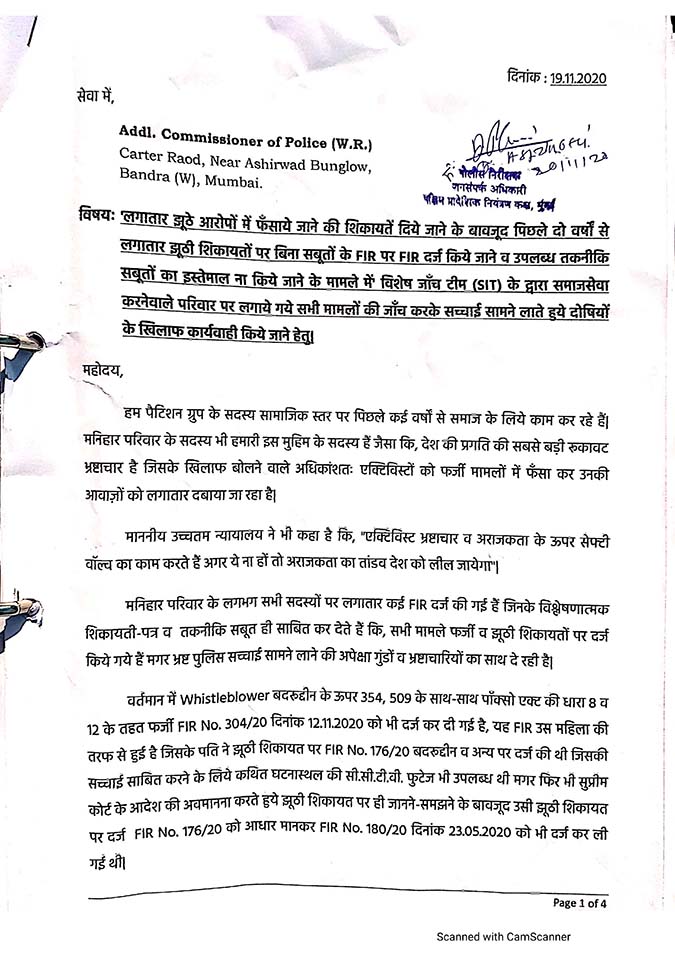 दिनांक : 19.11.2020
सेवा में,
Addl. Commissioner of Police (W.R.)
Carter Raod, Near Ashirwad Bunglow,
Bandra (W), Mumbai.
20/11/20
पोलीस निरीक्षक
जनसंपर्क अधिकारी
पश्चिम प्रादेशिक नियंत्रण कक्ष, मुंबई
विषयः 'लगातार झूठे आरोपों में फँसाये जाने की शिकायतें दिये जाने के बावजूद पिछले दो वर्षों से
लगातार झूठी शिकायतों पर बिना सबूतों के FIR पर FIR दर्ज किये जाने व उपलब्ध तकनीकि
सबूतों का इस्तेमाल ना किये जाने के मामले में' विशेष जाँच टीम (SIT) के द्वारा समाजसेवा
करनेवाले परिवार पर लगाये गये सभी मामलों की जाँच करके सच्चाई सामने लाते हुये दोषियों
के खिलाफ कार्यवाही किये जाने हेतु|
महोदय,
हम पैटिशन ग्रुप के सदस्य सामाजिक स्तर पर पिछले कई वर्षों से समाज के लिये काम कर रहे हैं|
मनिहार परिवार के सदस्य भी हमारी इस मुहिम के सदस्य हैं जैसा कि, देश की प्रगति की सबसे बड़ी रूकावट
भ्रष्टाचार है जिसके खिलाफ बोलने वाले अधिकांशतः एक्टिविस्टों को फर्जी मामलों में फँसा कर उनकी
आवाज़ों को लगातार दबाया जा रहा है|
माननीय उच्चतम न्यायालय ने भी कहा है कि, "एक्टिविस्ट भ्रष्टाचार व अराजकता के ऊपर सेफ्टी
वॉल्व का काम करते हैं अगर ये ना हों तो अराजकता का तांडव देश को लील जायेगा"|
मनिहार परिवार के लगभग सभी सदस्यों पर लगातार कई FIR दर्ज की गई हैं जिनके विश्लेषणात्मक
शिकायती-पत्र व तकनीकि सबूत ही साबित कर देते हैं कि, सभी मामले फर्जी व झूठी शिकायतों पर दर्ज
किये गये हैं मगर भ्रष्ट पुलिस सच्चाई सामने लाने की अपेक्षा गुंडों व भ्रष्टाचारियों का साथ दे रही है|
वर्तमान में Whistleblower बदरूद्दीन के ऊपर 354, 509 के साथ-साथ पॉक्सो एक्ट की धारा 8 व
12 के तहत फर्जी FIR No. 304/20 दिनांक 12.11.2020 को भी दर्ज कर दी गई है, यह FIR उस महिला की
तरफ से हुई है जिसके पति ने झूठी शिकायत पर FIR No. 176/20 बदरूद्दीन व अन्य पर दर्ज की थी जिसकी
सच्चाई साबित करने के लिये कथित घटनास्थल की सी.सी.टी.वी. फुटेज भी उपलब्ध थी मगर फिर भी सुप्रीम
कोर्ट के आदेश की अवमानना करते हुये झूठी शिकायत पर ही जानने-समझने के बावजूद उसी झूठी शिकायत
पर दर्ज FIR No. 176/20 को आधार मानकर FIR No. 180/20 दिनांक 23.05.2020 को भी दर्ज कर ली
गई थी|
Page 1 of 4
Scanned with CamScanner